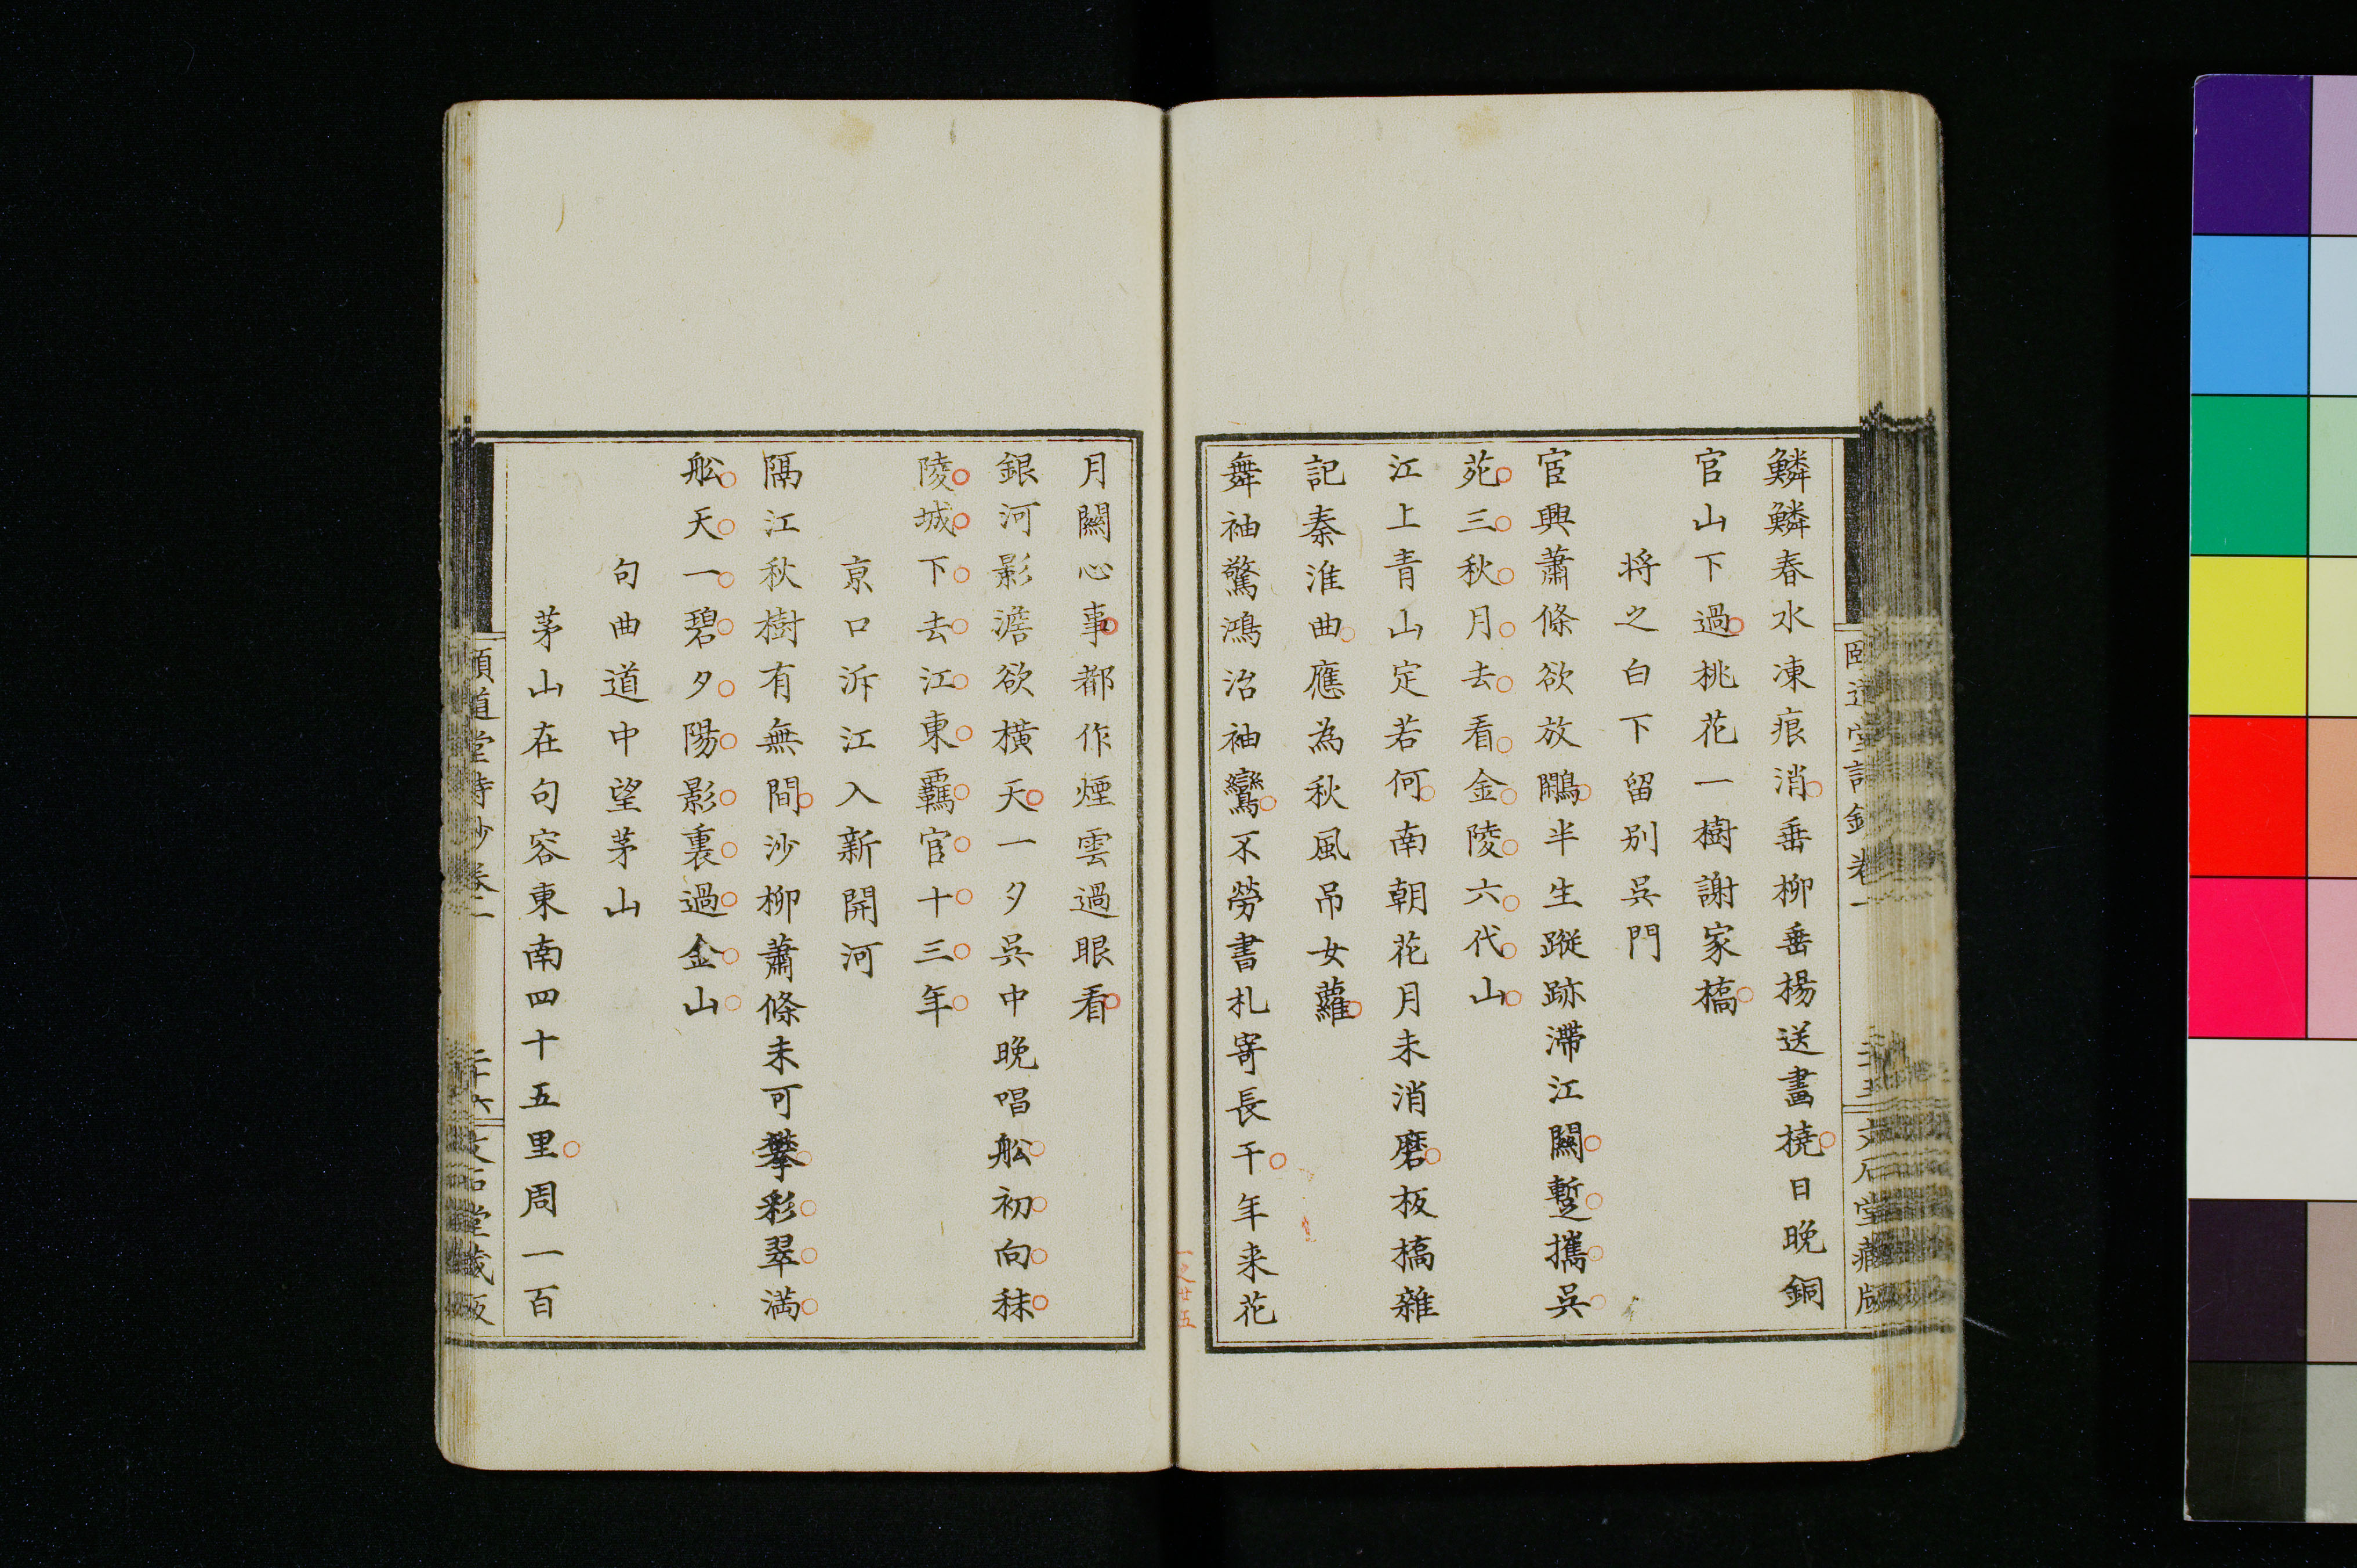 鱗鱗春水凍痕消垂柳垂楊送畫橈日晚銅
官山下過桃花一樹謝家橋
将之白下留别吳門
宦興蕭條欲放鷴半生蹤跡滯江關暫攜吳
苑三秋月去看金陵六代山
江上青山定若何南朝花月未消磨板橋雜
記秦淮曲應為秋風吊女蘿
舞袖驚鴻治袖鸞不勞書札寄長干年来花
月關心事都作煙雲過眼看
銀河影澹欲橫天一夕吳中晚唱舩初向秣
陵城下去江東羈官十三年
京口泝江入新開河
隔江秋樹有無間沙柳蕭條未可攀彩翠満
舩天一碧夕陽影裏過金山
句曲道中望茅山
茅山在句容東南四十五里周一百
頤道堂詩鈔卷二
二十六
文石堂藏版